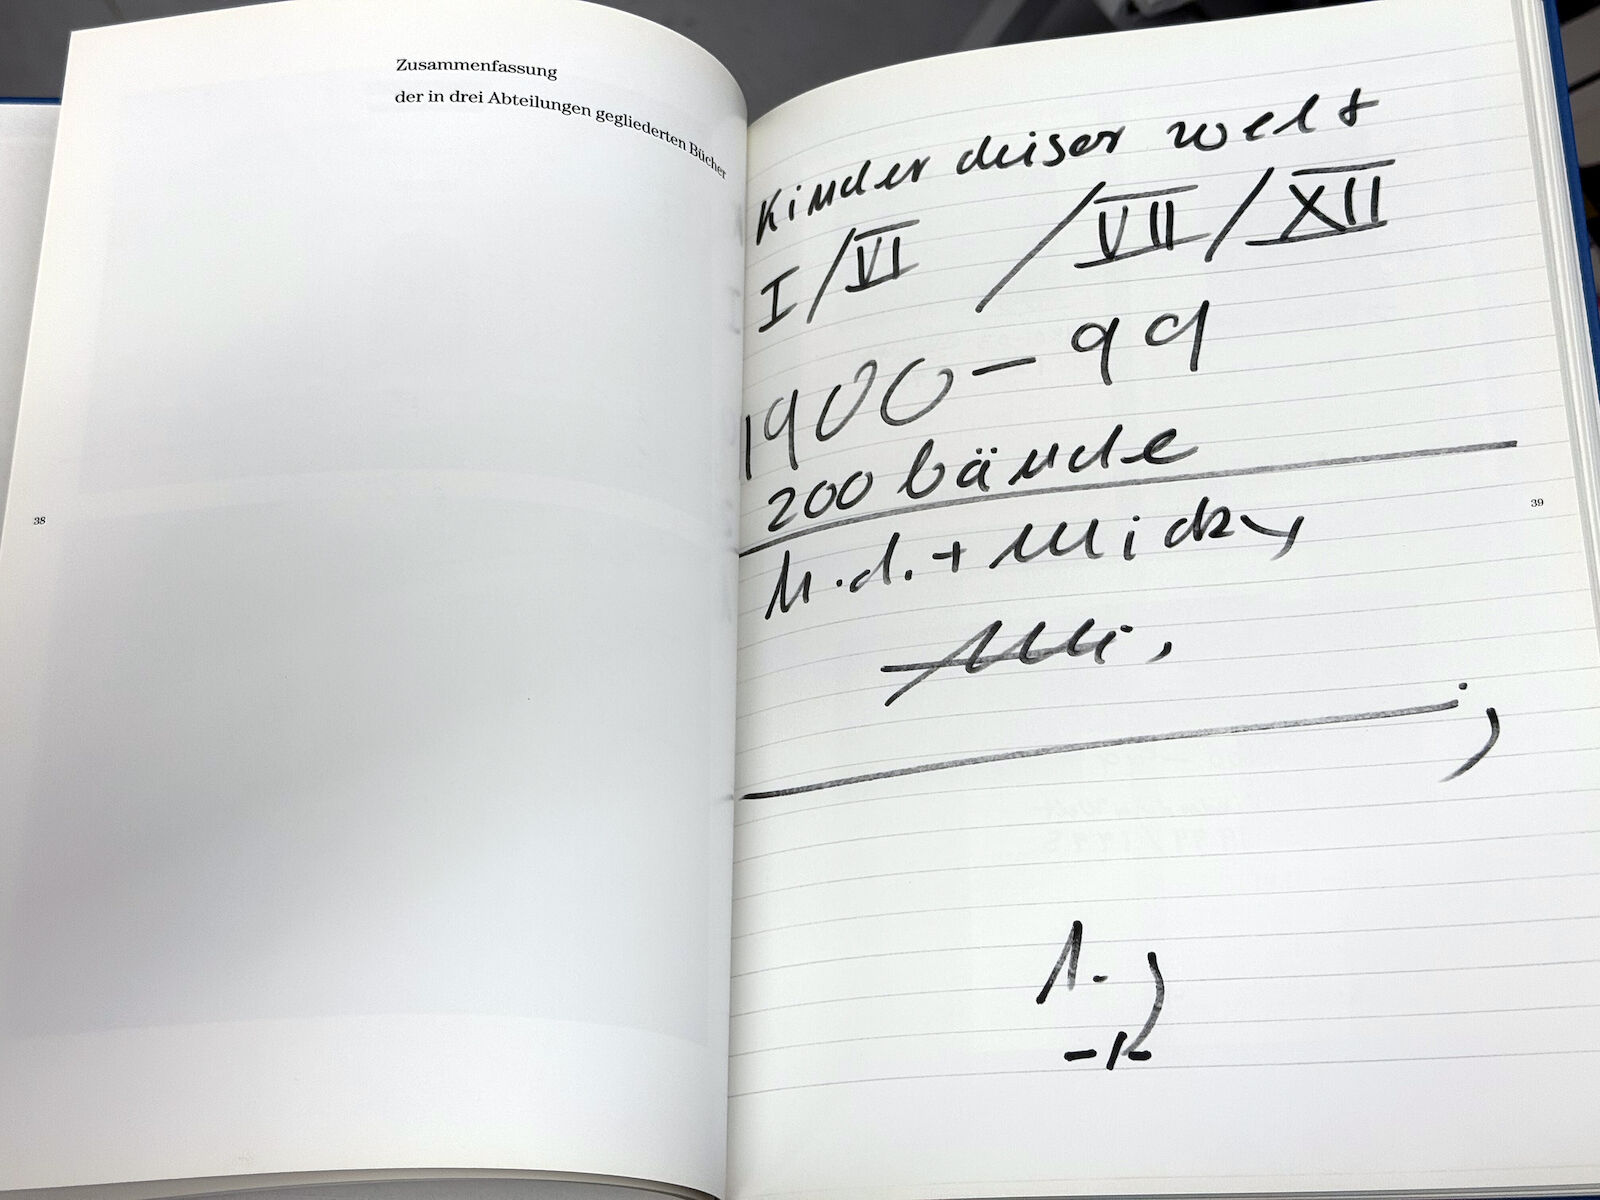 Zusammenfassung
der in drei Abteilungen gegliederten Bücher
38
Kinder deiser welt
I/VI /VII/XII
1900-99
200 bände
n.d. + Micky
Mi.
39
1.